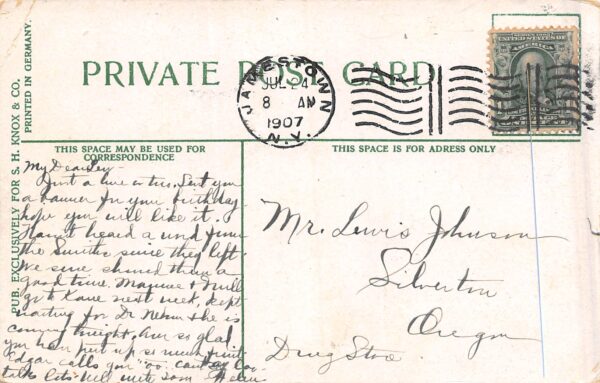 PRIVATE POST CARD
JAMESTOWN
JUL 24
8 AM
1907
N.Y.
SERIES 1902
UNITED STATES OF
AMERICA
PUB. EXCLUSIVELY FOR S. H. KNOX & CO.
PRINTED IN GERMANY.
THIS SPACE MAY BE USED FOR
CORRESPONDENCE
My Dear
Just a line or two. Sent you
a banner for your birthday
hope you will like it.
Haven't heard a word from
the Smiths since they left.
We sure showed them a
good time. Mayme & Will
go to Kane next week, kept
waiting for Dr & he is
coming tonight. Am so glad
you have put up so much fruit
Edgar calls you
talks lots. Will write soon
THIS SPACE IS FOR ADRESS ONLY
Mr. Lewis Johnson
Silverton
Oregon
Drug Store